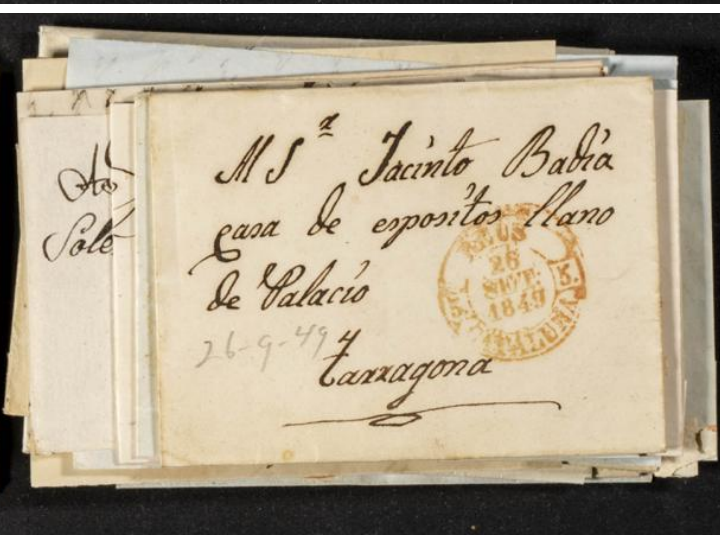 Al Sr Jacinto Badia
casa de espositos llano
de Palacio
4
Tarragona
26-9-49
REUS
26
SET.
1849
CATALUÑA
Solé